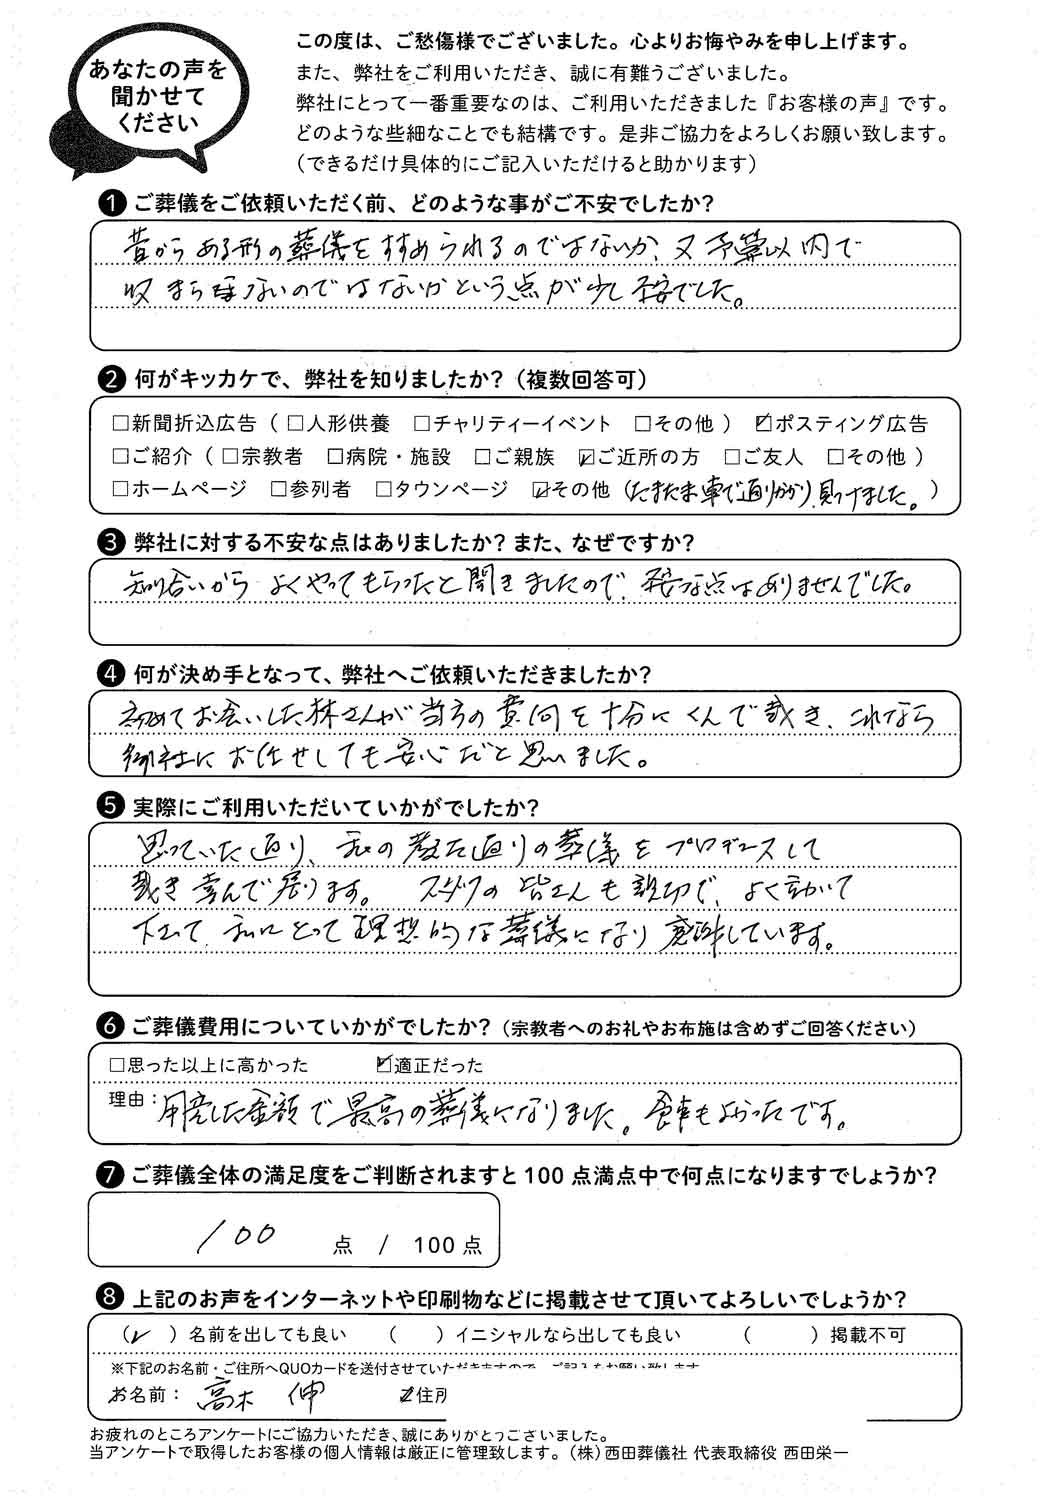 あなたの声を
聞かせて
ください
この度は、ご愁傷様でございました。心よりお悔やみを申し上げます。
また、弊社をご利用いただき、誠に有難うございました。
弊社にとって一番重要なのは、ご利用いただきました『お客様の声』です。
どのような些細なことでも結構です。是非ご協力をよろしくお願い致します。
（できるだけ具体的にご記入いただけると助かります）
❶ ご葬儀をご依頼いただく前、どのような事がご不安でしたか？
昔からある形の葬儀をすすめられるのではないか、又予算以内で
収まらないのではないかという点が少し不安でした。
❷ 何がキッカケで、弊社を知りましたか？（複数回答可）
□新聞折込広告（□人形供養 □チャリティーイベント □その他） ☑ポスティング広告
□ご紹介（□宗教者 □病院・施設 □ご親族 ☑ご近所の方 □ご友人 □その他）
□ホームページ □参列者 □タウンページ ☑その他（たまたま車で通りがかり、見つけました。）
❸ 弊社に対する不安な点はありましたか？また、なぜですか？
知り合いからよくやってもらったと聞きましたので、不安な点はありませんでした。
❹ 何が決め手となって、弊社へご依頼いただきましたか？
初めてお会いした林さんが当方の意向を十分にくんで戴き、これなら
御社にお任せしても安心だと思いました。
❺ 実際にご利用いただいていかがでしたか？
思っていた通り、私の考えた通りの葬儀をプロデュースして
戴き喜んで居ります。スタッフの皆さんも親切で、よく動いて
下さって、私にとって理想的な葬儀になり感謝しています。
❻ ご葬儀費用についていかがでしたか？（宗教者へのお礼やお布施は含めずご回答ください）
□思った以上に高かった ☑適正だった
理由：用意した金額で最高の葬儀になりました。食事もよかったです。
❼ ご葬儀全体の満足度をご判断されますと100点満点中で何点になりますでしょうか？
100 点 / 100点
❽ 上記のお声をインターネットや印刷物などに掲載させて頂いてよろしいでしょうか？
（✓）名前を出しても良い （ ）イニシャルなら出しても良い （ ）掲載不可
※下記のお名前・ご住所へQUOカードを送付させていただきますので、ご記入をお願い致します
お名前：高木 伸 ご住所
お疲れのところアンケートにご協力いただき、誠にありがとうございました。
当アンケートで取得したお客様の個人情報は厳正に管理致します。（株）西田葬儀社 代表取締役 西田栄一